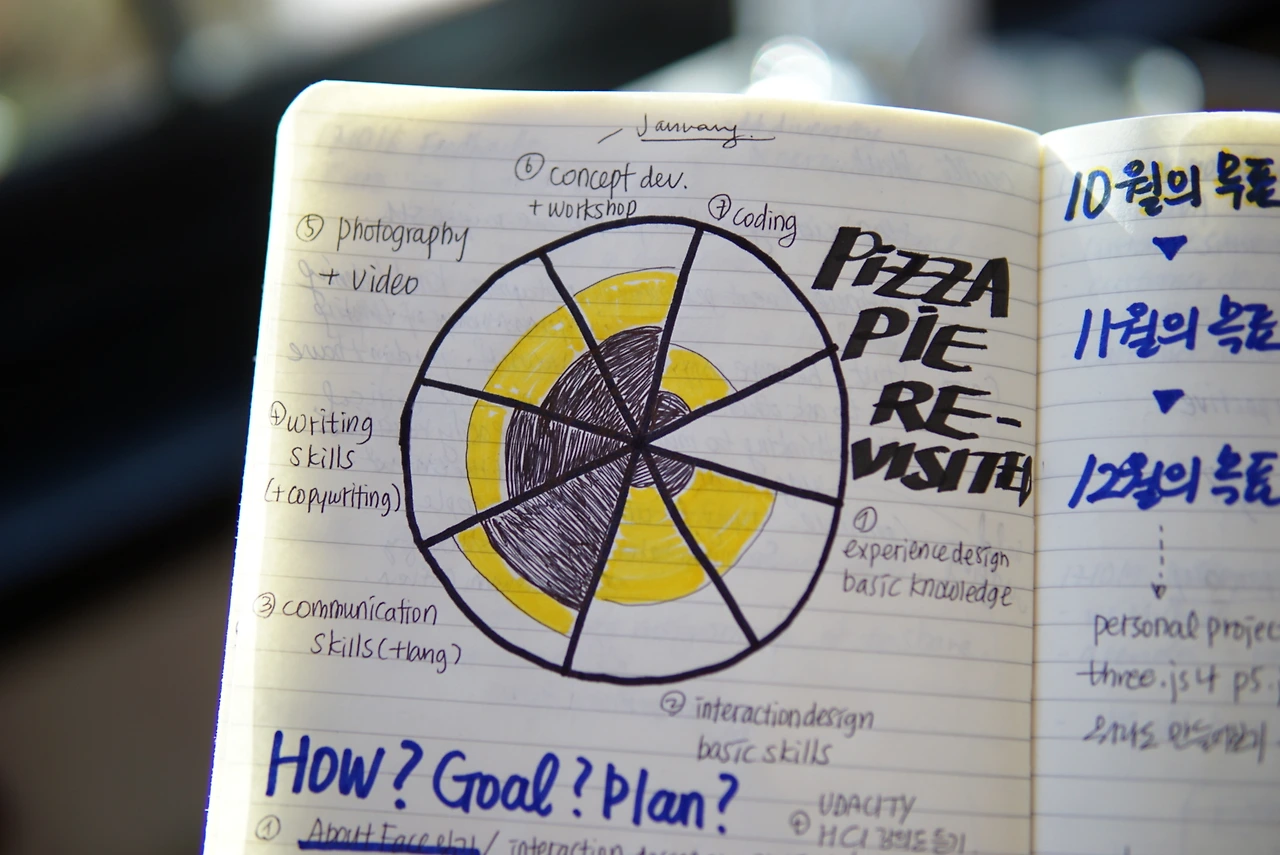 January.
⑥ concept dev.
+ workshop
⑦ coding
⑤ photography
+ video
PIZZA
PIE
RE-
VISITED
④ writing
skills
(+copywriting)
① experience design
basic knowledge
③ communication
skills (+lang)
② interaction design
basic skills
How? Goal? Plan?
① About Face 읽기 / interaction
+ UDACITY
HCI 강의도 듣기
10월의 목표
11월의 목표
12월의 목표
personal projec
three.js 4 p5.